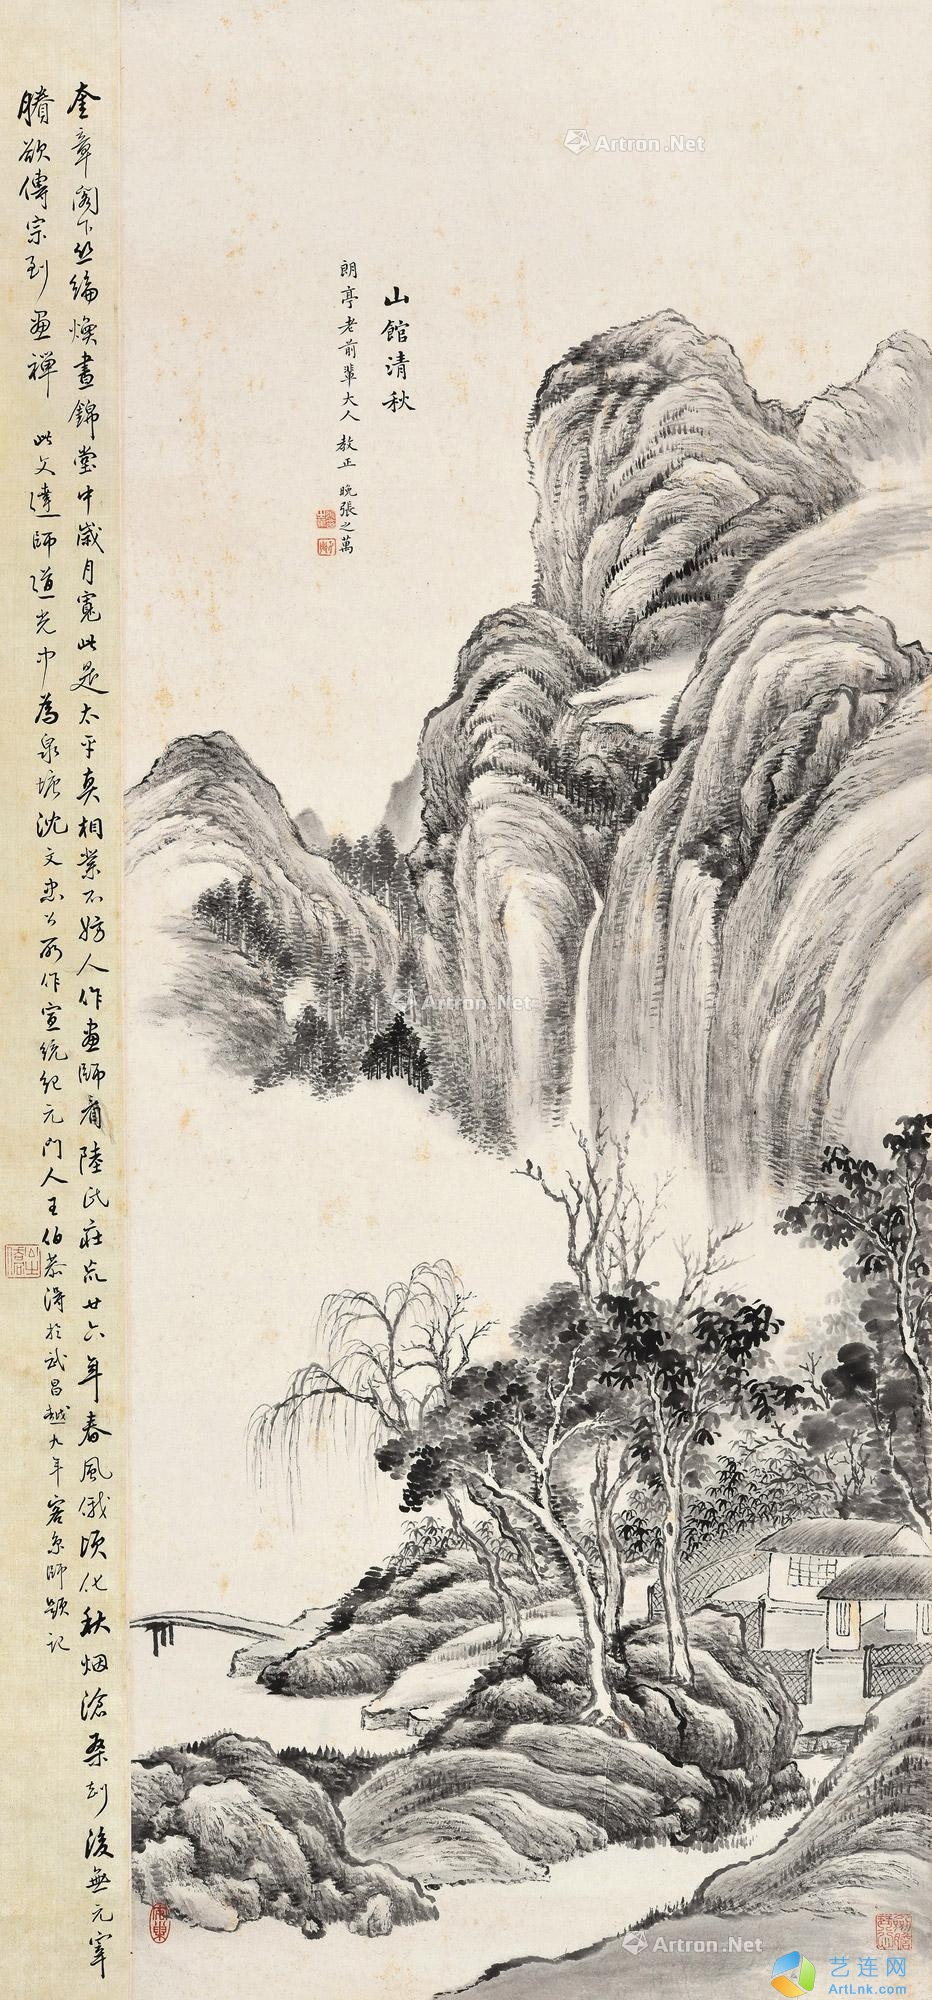 山館清秋
朗亭老前輩大人 教正 晚張之萬
奎章閣下丝綸煥晝錦堂中歲月寬此是太平真相業不妨人作畫師看陸氏莊荒廿六年春風俄頃化秋烟滄桑劫後無元宰
賸欲傳宗到畫禪 此文達師道光中為泉塘沈文忠公所作宣統紀元門人王伯恭得於武昌越九年客京師題記
Artron.Net
Artron.Net
Artron.Net
艺连网
ArtLnk.com